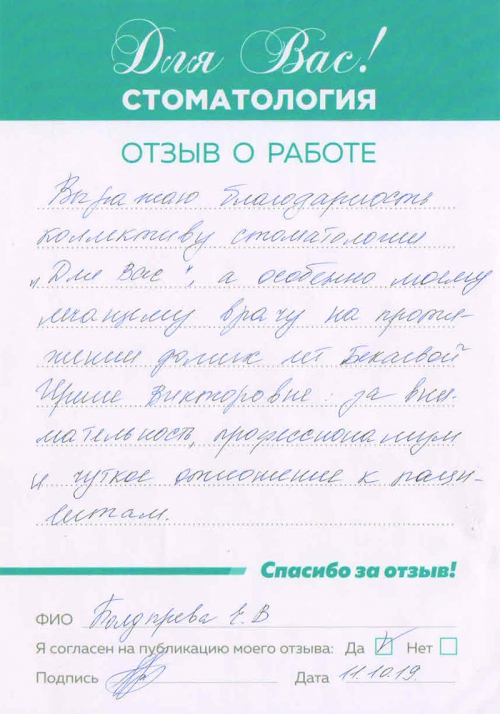 Для Вас!
СТОМАТОЛОГИЯ
ОТЗЫВ О РАБОТЕ
Выражаю благодарность
коллективу стоматологии
„Для Вас", а особенно моему
лечащему врачу на протя-
жении долгих лет Бекаевой
Ирине Викторовне: за вни-
мательность, профессионализм
и чуткое отношение к паци-
ентам.
Спасибо за отзыв!
ФИО
Я согласен на публикацию моего отзыва: Да Нет
Подпись Дата 11.10.19.